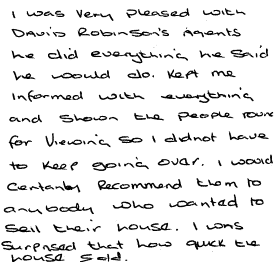 I was very pleased with
David Robinson's Agents
he did everything he said
he would do. Kept me
informed with everything
and shown the people roun
for viewing so I didnot have
to keep going over. I would
Certanby Recommend them to
anybody who wanted to
sell their house. I was
Surprised that how quick the
house sold.